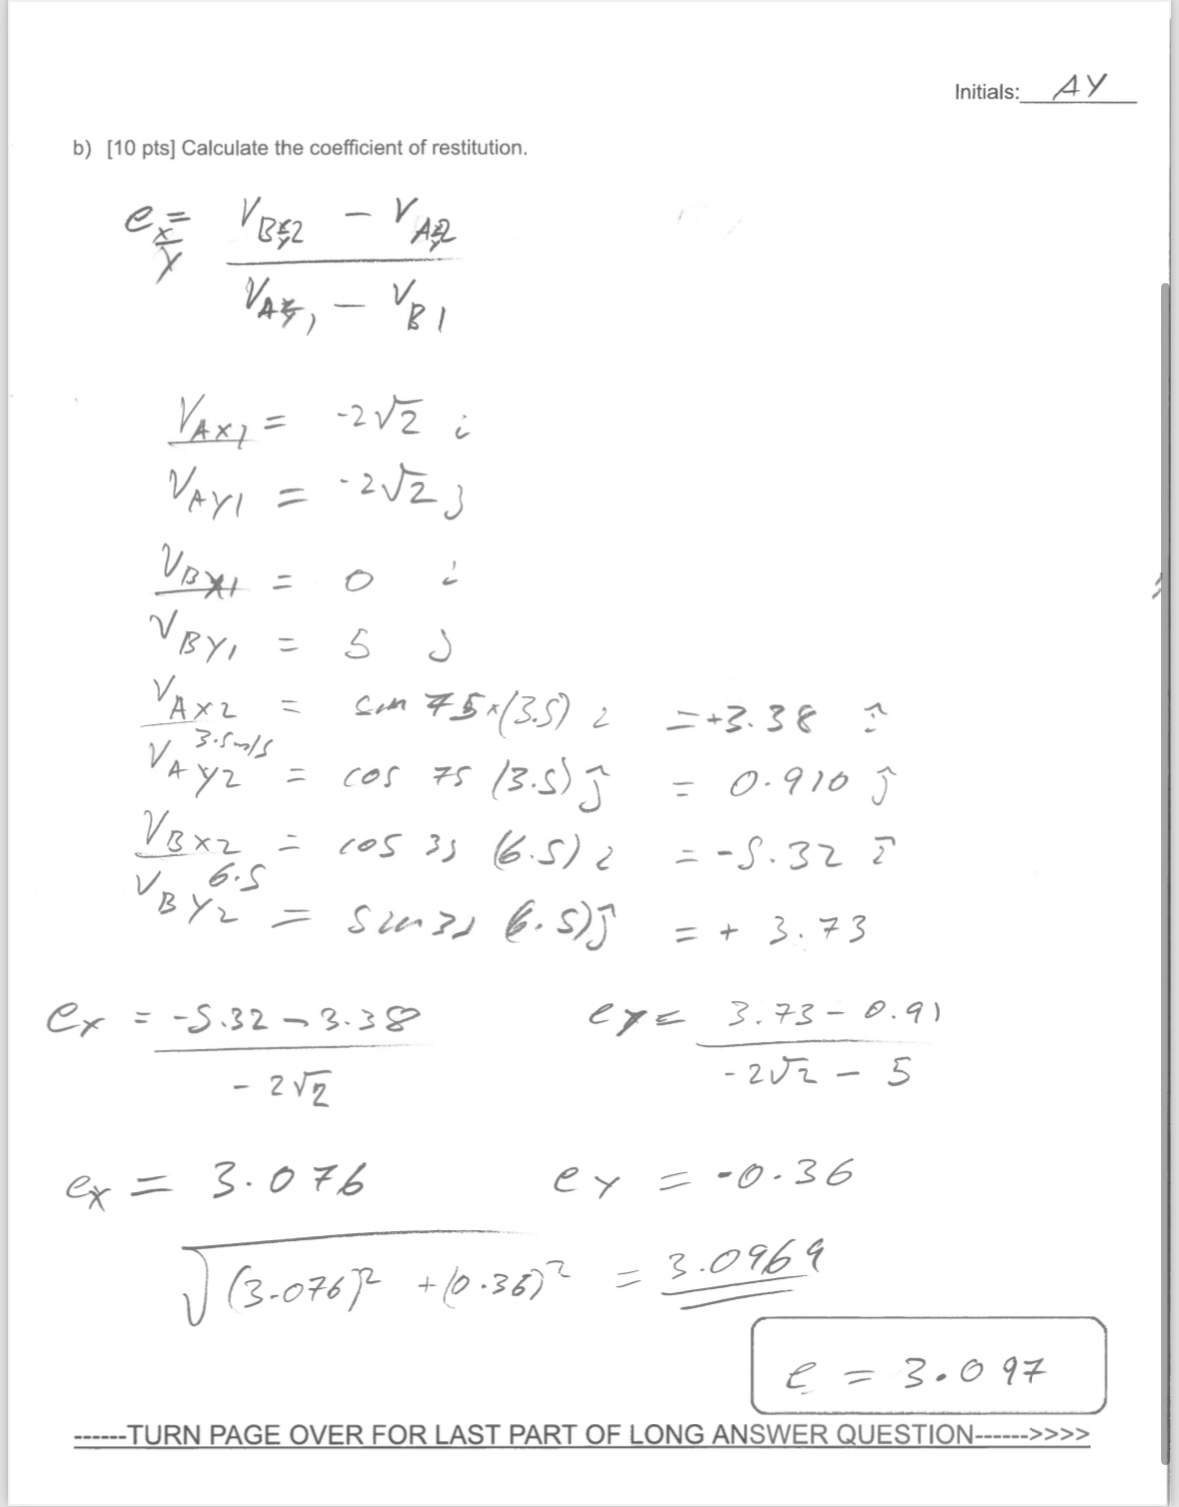 Initials: AY
b) [10 pts] Calculate the coefficient of restitution.
e x/y = (V B x/y 2 - V A x/y 2) / (V A x/y 1 - V B 1)
V AX1 = -2√2 i
V AY1 = -2√2 j
V BX1 = 0 i
V BY1 = 5 j
V AX2 = sin 75 × (3.5) i = +3.38 î
3.5 m/s
V AY2 = cos 75 (3.5) ĵ = 0.910 ĵ
V BX2 = cos 35 (6.5) i = -5.32 î
6.5
V BY2 = sin 35 (6.5) ĵ = + 3.73
ex = (-5.32 - 3.38) / (-2√2) ey = (3.73 - 0.91) / (-2√2 - 5)
ex = 3.076 ey = -0.36
√((3.076)² + (0.36)²) = 3.0969
e = 3.097
------TURN PAGE OVER FOR LAST PART OF LONG ANSWER QUESTION------>>>>